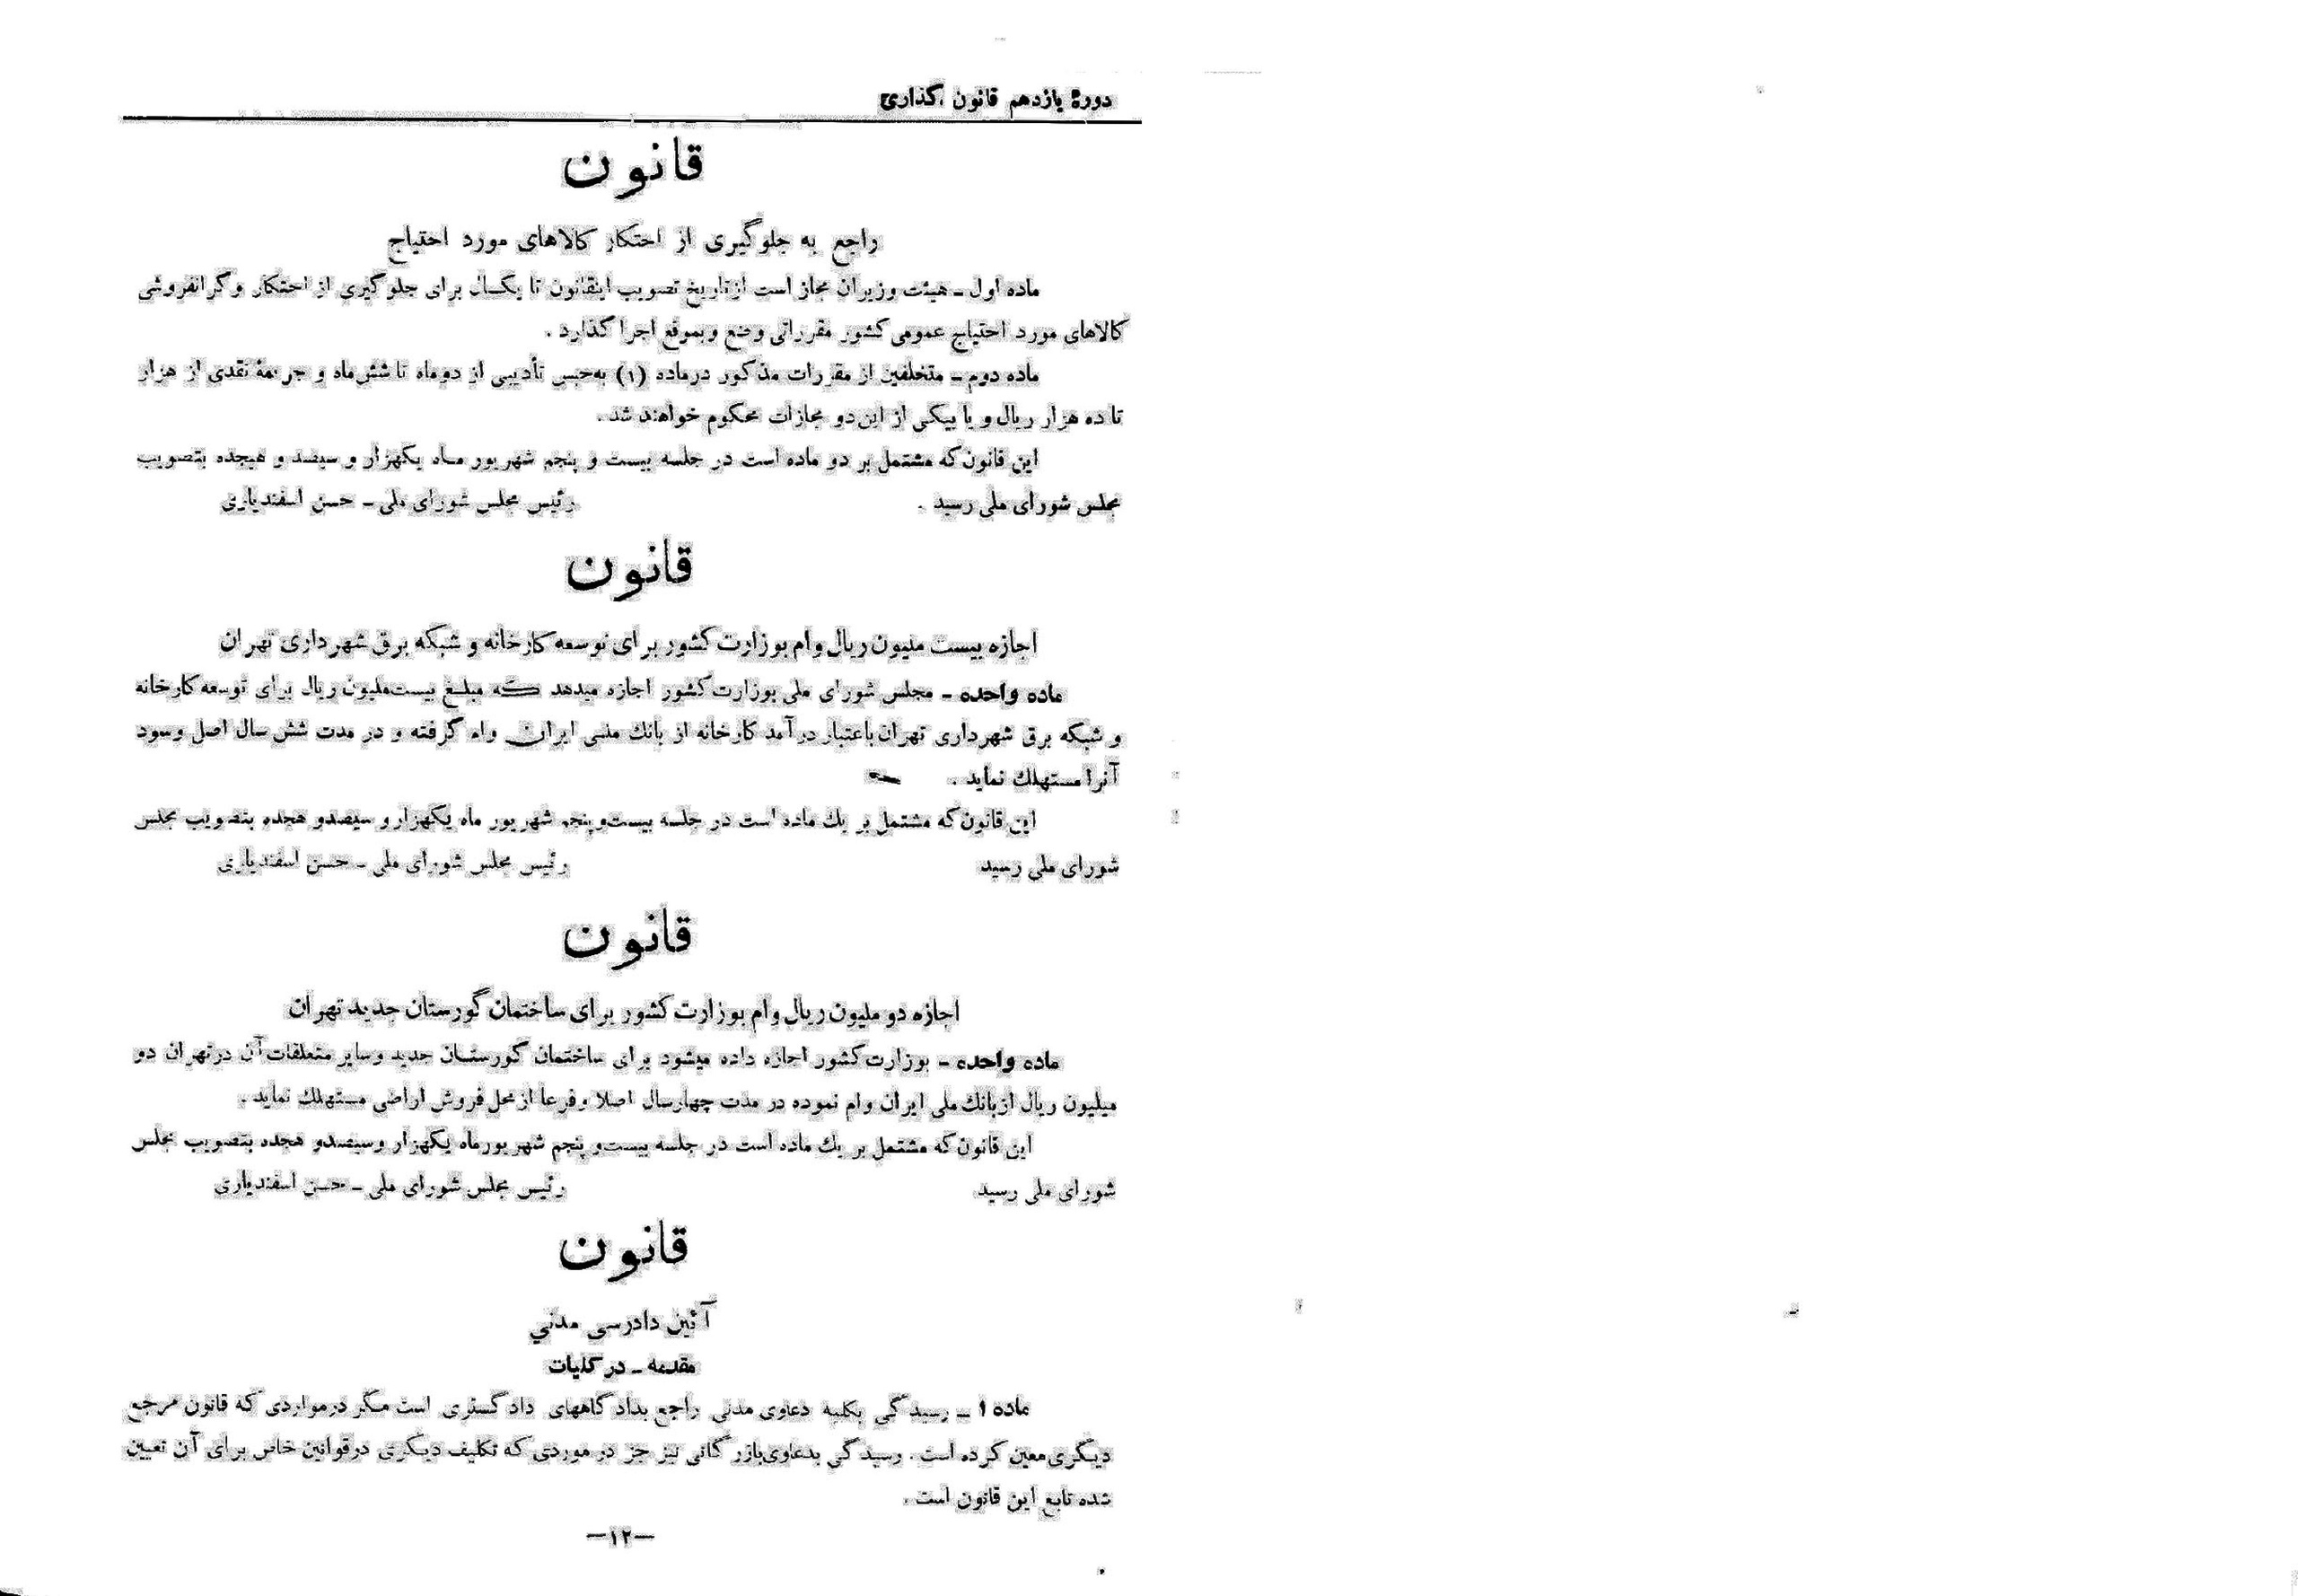 دورهٔ یازدهم قانون گذاری
قانون
راجع به جلوگیری از احتکار کالاهای مورد احتیاج
ماده اول ـ هیئت وزیران مجاز است از تاریخ تصویب اینقانون تا یکسال برای جلوگیری از احتکار و گرانفروشی
کالاهای مورد احتیاج عمومی کشور مقرراتی وضع و بموقع اجرا گذارد .
ماده دوم ـ متخلفین از مقررات مذکور در ماده (۱) به حبس تأدیبی از دو ماه تا شش ماه و جریمهٔ نقدی از هزار
تا ده هزار ریال و یا بیکی از این دو مجازات محکوم خواهند شد .
این قانون که مشتمل بر دو ماده است در جلسه بیست و پنجم شهریور ماه یکهزار و سیصد و هیجده بتصویب
مجلس شورای ملی رسید . رئیس مجلس شورای ملی ـ حسن اسفندیاری
قانون
اجازه بیست ملیون ریال وام بوزارت کشور برای توسعه کارخانه و شبکه برق شهرداری تهران
ماده واحده ـ مجلس شورای ملی بوزارت کشور اجازه میدهد که مبلغ بیست ملیون ریال برای توسعه کارخانه
و شبکه برق شهرداری تهران باعتبار درآمد کارخانه از بانك ملی ایران وام گرفته و در مدت شش سال اصل و سود
آنرا مستهلك نماید .
این قانون که مشتمل بر یك ماده است در جلسه بیست و پنجم شهریور ماه یکهزار و سیصد و هجده بتصویب مجلس
شورای ملی رسید رئیس مجلس شورای ملی ـ حسن اسفندیاری
قانون
اجازه دو ملیون ریال وام بوزارت کشور برای ساختمان گورستان جدید تهران
ماده واحده ـ بوزارت کشور اجازه داده میشود برای ساختمان گورستان جدید و سایر متعلقات آن در تهران دو
میلیون ریال از بانك ملی ایران وام نموده در مدت چهار سال اصلا و فرعا از محل فروش اراضی مستهلك نماید .
این قانون که مشتمل بر یك ماده است در جلسه بیست و پنجم شهریور ماه یکهزار و سیصد و هجده بتصویب مجلس
شورای ملی رسید رئیس مجلس شورای ملی ـ حسن اسفندیاری
قانون
آئین دادرسی مدنی
مقدمه ـ در کلیات
ماده ۱ ـ رسیدگی بکلیه دعاوی مدنی راجع بدادگاههای دادگستری است مگر در مواردی که قانون مرجع
دیگری معین کرده است . رسیدگی بدعاوی بازرگانی نیز جز در موردی که تکلیف دیگری در قوانین خاص برای آن تعیین
شده تابع این قانون است .
—۱۲—